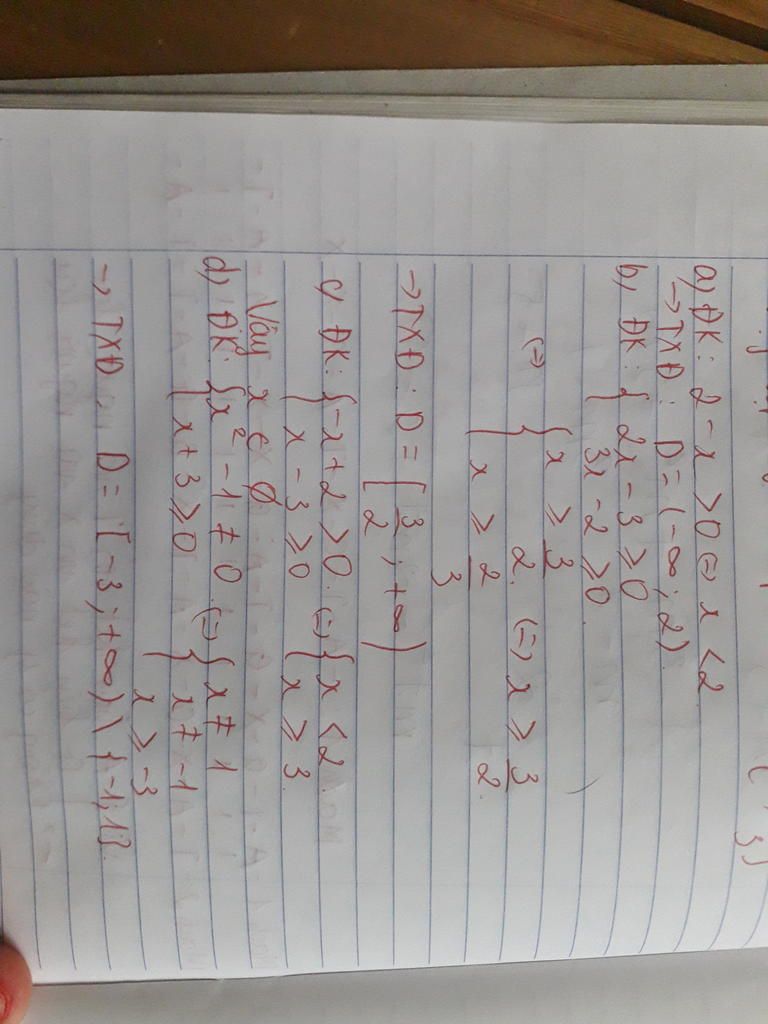 a, ĐK: 2 - x > 0 ⇔ x < 2
→ TXĐ: D = (-∞; 2).
b, ĐK: { 2x - 3 ≥ 0
3x - 2 ≥ 0.
⇔ { x ≥ 3/2. ⇔ x ≥ 3/2.
{ x ≥ 2/3
→ TXĐ: D = [3/2; +∞)
c, ĐK: { -x + 2 > 0. ⇔ { x < 2.
{ x - 3 ≥ 0 { x ≥ 3.
Vậy x ∈ ∅
d, ĐK: { x² - 1 ≠ 0. ⇔ { x ≠ 1
{ x + 3 ≥ 0 { x ≠ -1
x ≥ -3
→ TXĐ: D = [-3; +∞) \ {-1; 1}.